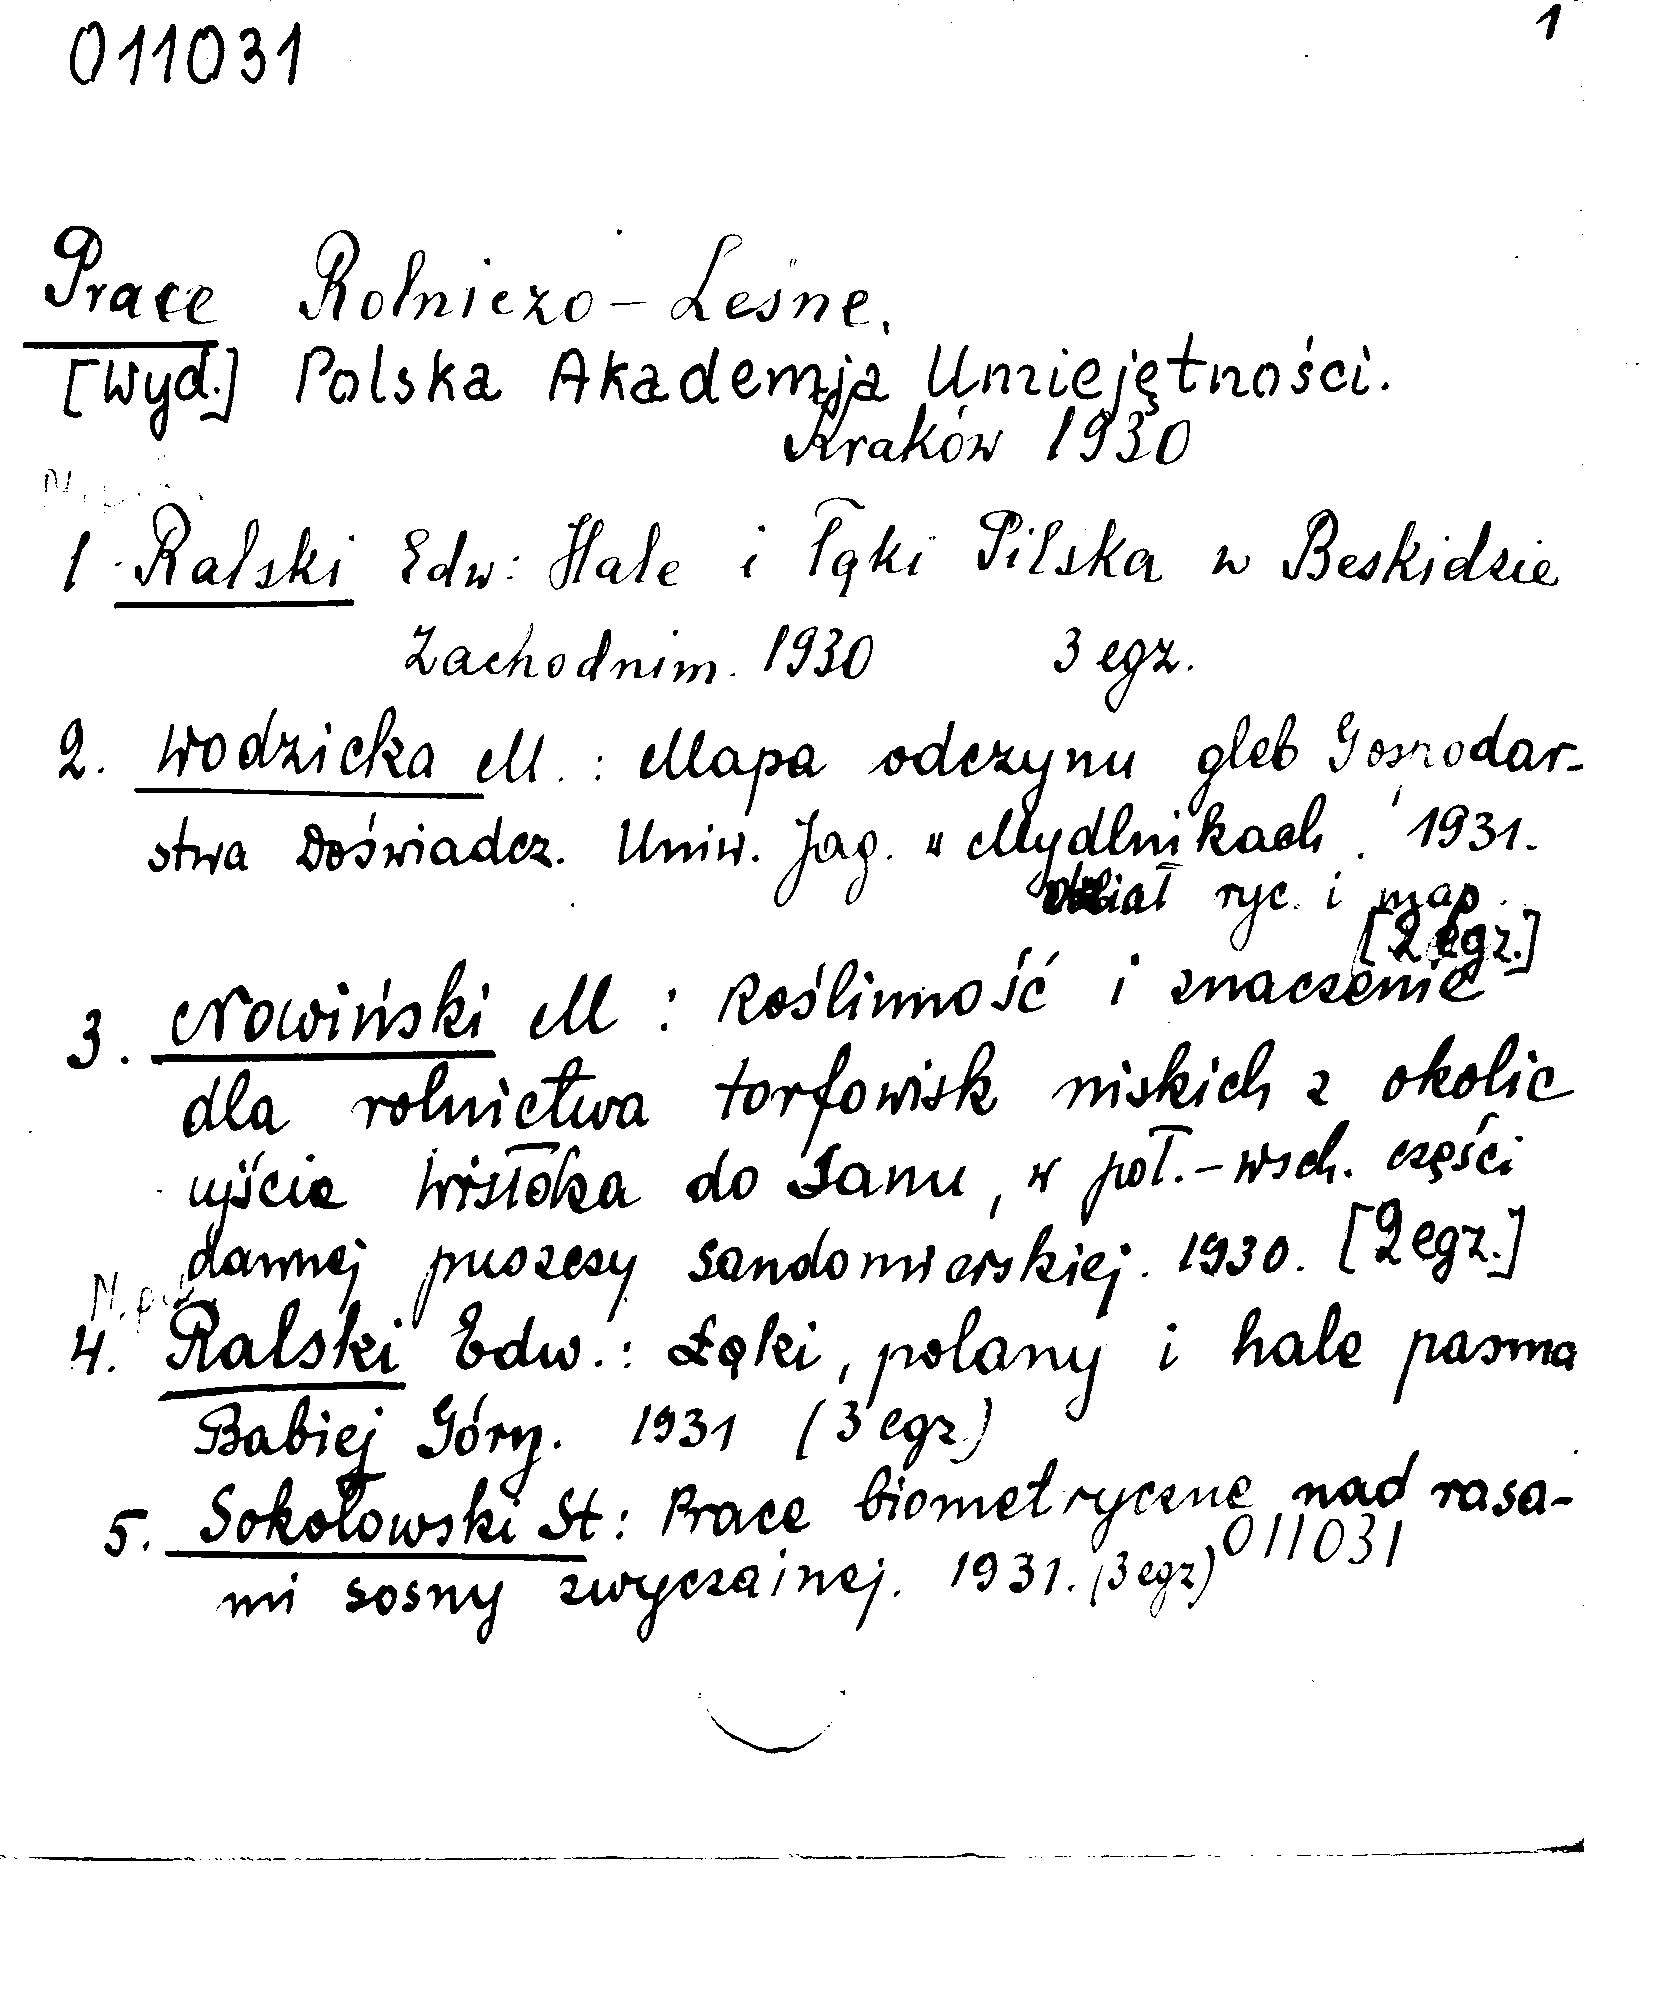 011031
1
Prace Rolniczo-Leśne.
[Wyd.] Polska Akademja Umiejętności.
Kraków 1930
1 Ralski Edw: Hale i łąki Pilska w Beskidzie
Zachodnim. 1930 3 egz.
2. Wodzicka M. : Mapa odczynu gleb Gospodar-
stwa Doświadcz. Uniw. Jag. w Mydlnikach. 1931.
dział ryc. i map.
[2 egz.]
3. Nowiński M : Roślinność i znaczenie
dla rolnictwa torfowisk niskich z okolic
ujścia Wisłoka do Sanu, w poł.-wsch. części
dawnej puszczy sandomierskiej. 1930. [2 egz.]
4. Ralski Edw.: Łąki, polany i hale pasma
Babiej Góry. 1931 (3 egz.)
5. Sokołowski St: Prace biometryczne nad rasa-
mi sosny zwyczainej. 1931. (3 egz) 011031